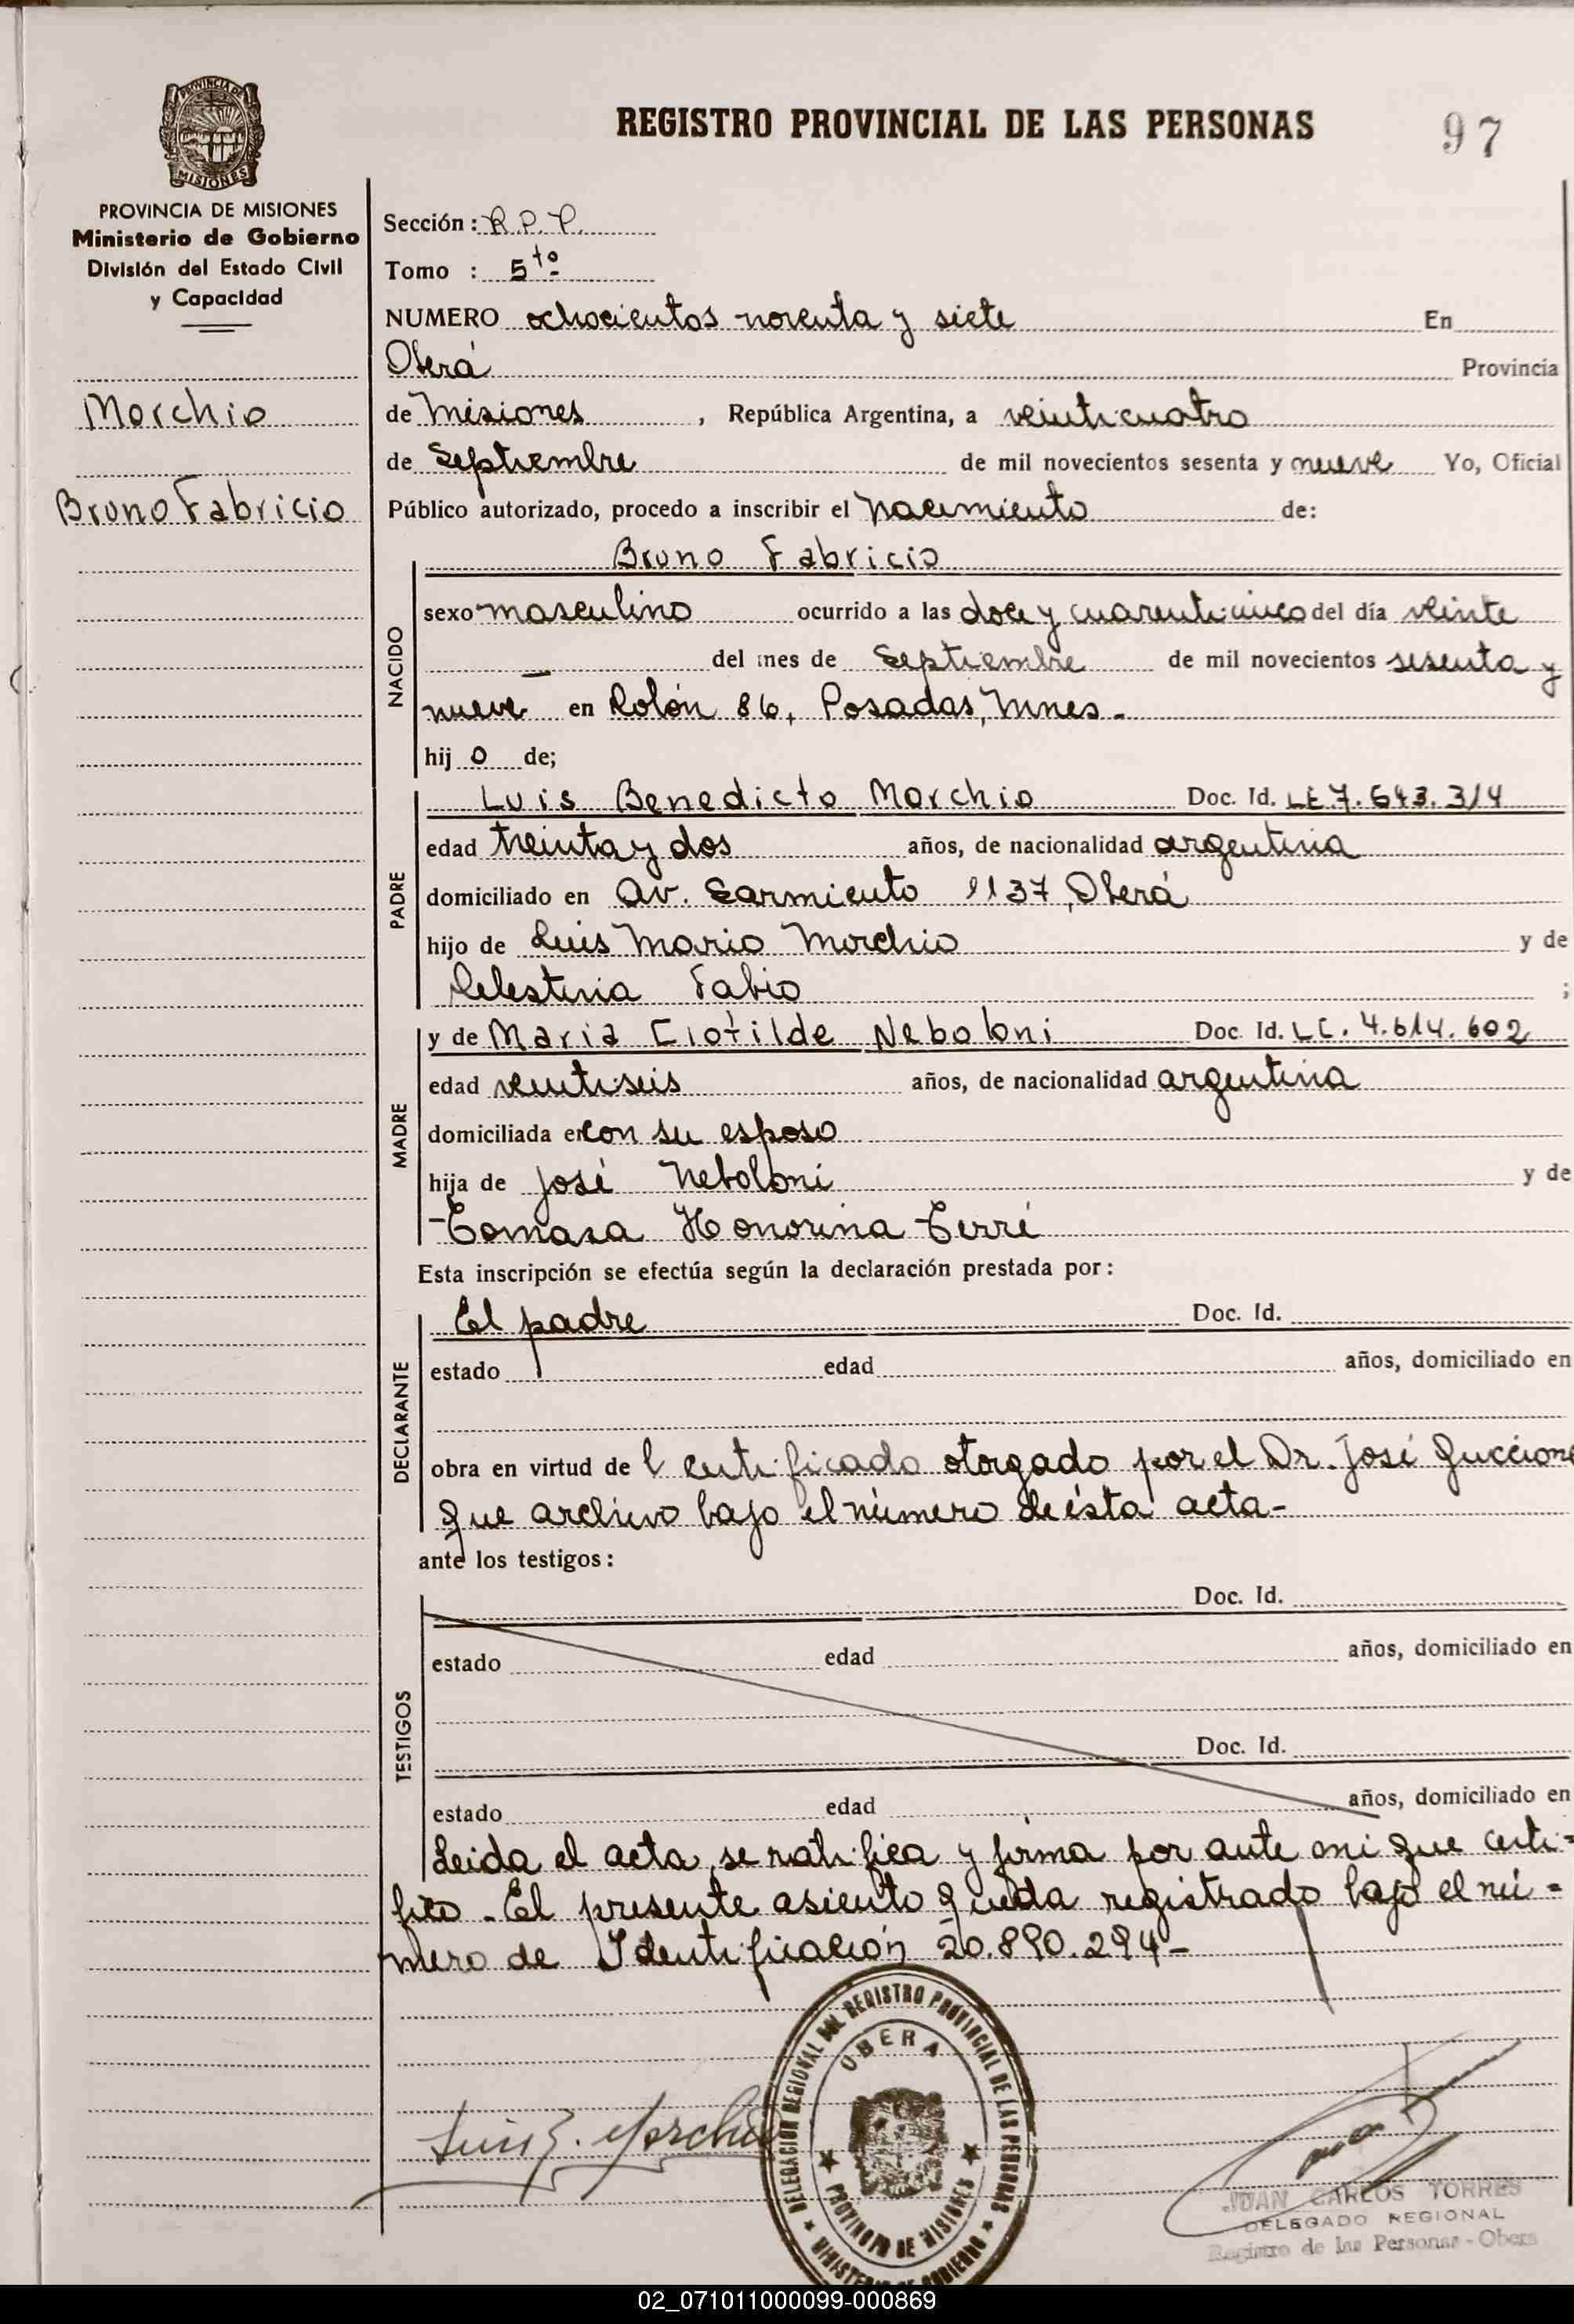 PROVINCIA DE
MISIONES
REGISTRO PROVINCIAL DE LAS PERSONAS
97
PROVINCIA DE MISIONES
Ministerio de Gobierno
División del Estado Civil
y Capacidad
Morchio
Bruno Fabricio
Sección: R.P.P.
Tomo : 5to
NUMERO ochocientos noventa y siete En
Oberá Provincia
de Misiones , República Argentina, a veinticuatro
de Septiembre de mil novecientos sesenta y nueve Yo, Oficial
Público autorizado, procedo a inscribir el Nacimiento de:
NACIDO
Bruno Fabricio
sexo masculino ocurrido a las doce y cuarenticinco del día veinte
— del mes de Septiembre de mil novecientos sesenta y
nueve en Colón 86, Posadas, Mnes.-
hij o de;
PADRE
Luis Benedicto Morchio Doc. Id. LE 7.643.314
edad treinta y dos años, de nacionalidad argentina
domiciliado en Av. Sarmiento 1137, Oberá
hijo de Luis Mario Morchio y de
Celestina Fabio ;
MADRE
y de Maria Clotilde Neboloni Doc. Id. LC. 4.614.602
edad veintiseis años, de nacionalidad argentina
domiciliada en con su esposo
hija de José Neboloni y de
Tomasa Honorina Terré
Esta inscripción se efectúa según la declaración prestada por:
DECLARANTE
El padre Doc. Id.
estado edad años, domiciliado en
obra en virtud de l certificado otorgado por el Dr. José Guccione
que archivo bajo el número de ésta acta-
ante los testigos:
TESTIGOS
Doc. Id.
estado edad años, domiciliado en
Doc. Id.
estado edad años, domiciliado en
Leida el acta, se ratifica y firma por ante mi que certi=
fico. El presente asiento queda registrado bajo el nú=
mero de Identificación 20.890.294-
DELEGACION REGIONAL DEL REGISTRO PROVINCIAL DE LAS PERSONAS
OBERA
PROVINCIA DE MISIONES
MINISTERIO DE GOBIERNO
Luis B. Morchio
JUAN CARLOS TORRES
DELEGADO REGIONAL
Registro de las Personas - Obera
02_071011000099-000869